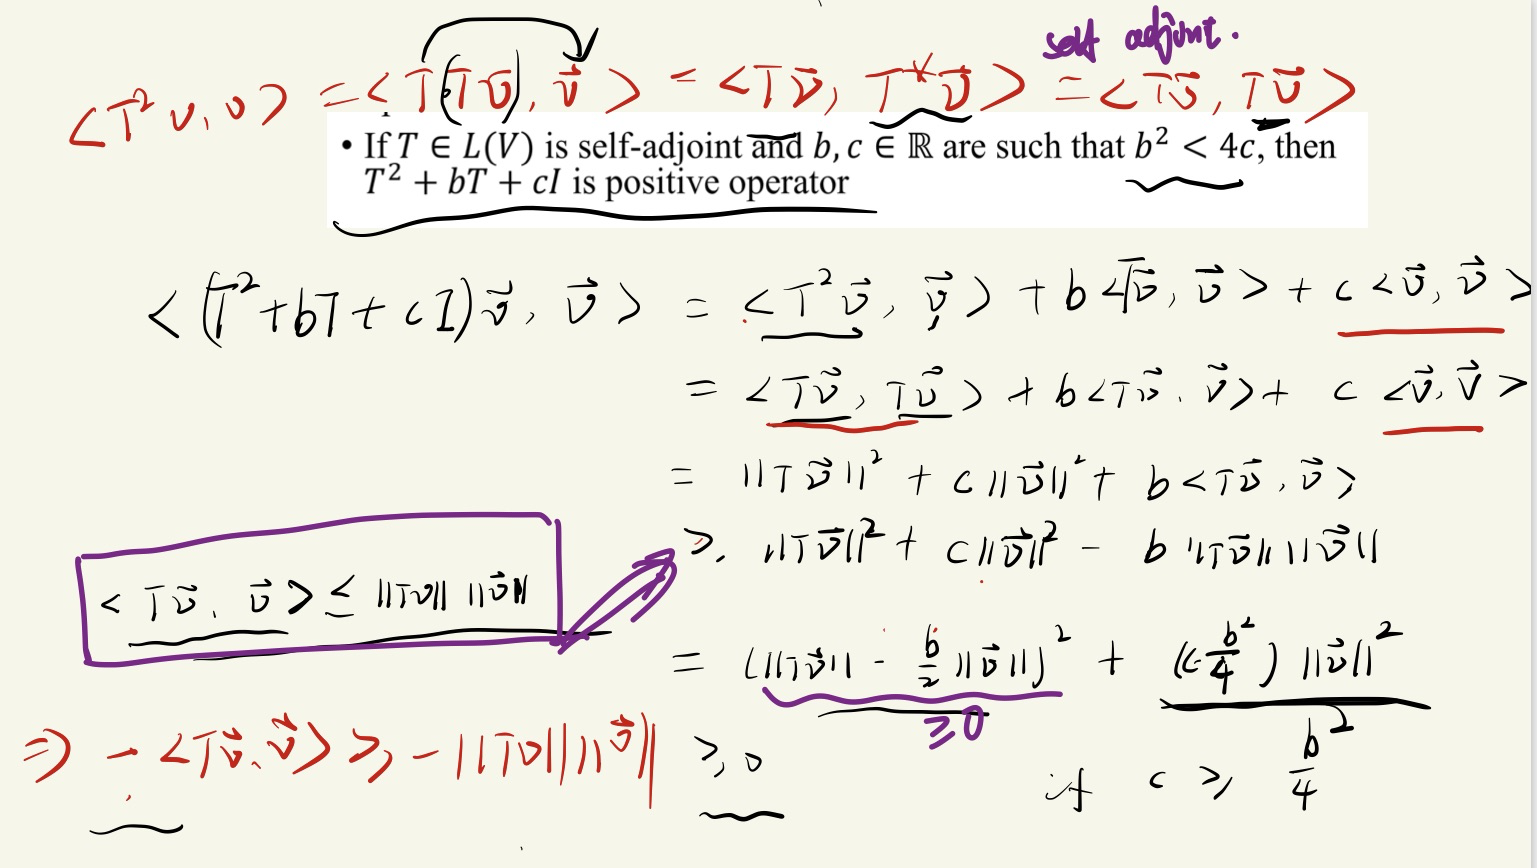 self adjoint.
<T²v, v> = <T(Tv⃗), v⃗> = <Tv⃗, T*v⃗> = <Tv⃗, Tv⃗>
• If T ∈ L(V) is self-adjoint and b, c ∈ ℝ are such that b² < 4c, then
T² + bT + cI is positive operator
<(T²+bT+cI)v⃗, v⃗> = <T²v⃗, v⃗> + b<Tv⃗, v⃗> + c<v⃗, v⃗>
= <Tv⃗, Tv⃗> + b<Tv⃗, v⃗> + c<v⃗, v⃗>
= ||Tv⃗||² + c||v⃗||² + b<Tv⃗, v⃗>
≥ ||Tv⃗||² + c||v⃗||² - b||Tv⃗|| ||v⃗||
<Tv⃗, v⃗> ≤ ||Tv|| ||v⃗||
= (||Tv⃗|| - b/2 ||v⃗||)² + (c-b²/4) ||v⃗||²
≥0
⇒ -<Tv⃗, v⃗> ≥ -||Tv|| ||v⃗||
≥ 0
if c ≥ b²/4